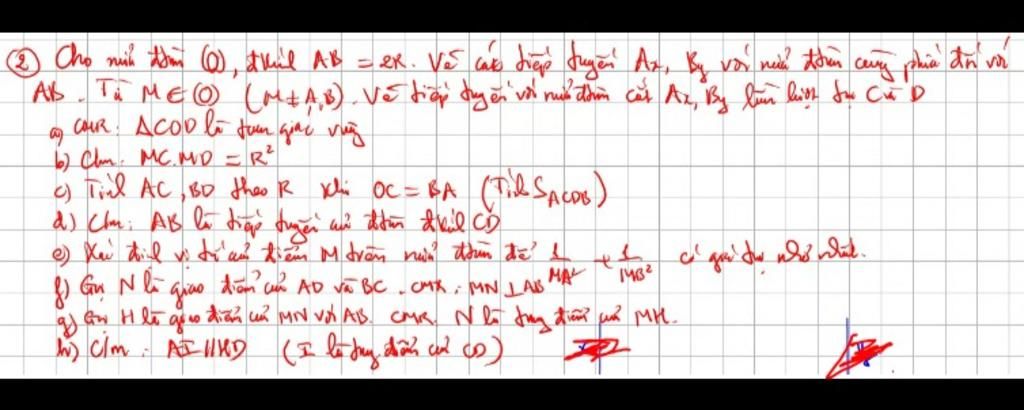 ② Cho nửa đtròn (O), đkính AB = 2R. Vẽ các tiếp tuyến Ax, By với nửa đtròn cùng phía đối với
AB. Từ M ∈ (O) (M ≠ A, B). Vẽ tiếp tuyến với nửa đtròn cắt Ax, By lần lượt tại C và D
a) CMR: ΔCOD là tam giác vuông
b) Chm: MC.MD = R²
c) Tính AC, BD theo R khi OC = BA (Tính S_ACDB)
d) Chm: AB là tiếp tuyến của đtròn đkính CD
e) Xác định vị trí của điểm M trên nửa đtròn để 1/MA² + 1/MB² có giá trị nhỏ nhất.
f) Gọi N là giao điểm của AD và BC. CMR: MN ⊥ AB
g) Gọi H là giao điểm của MN với AB. CMR. N là trung điểm của MH.
h) C/m: AI // HD (I là trung điểm của CD)